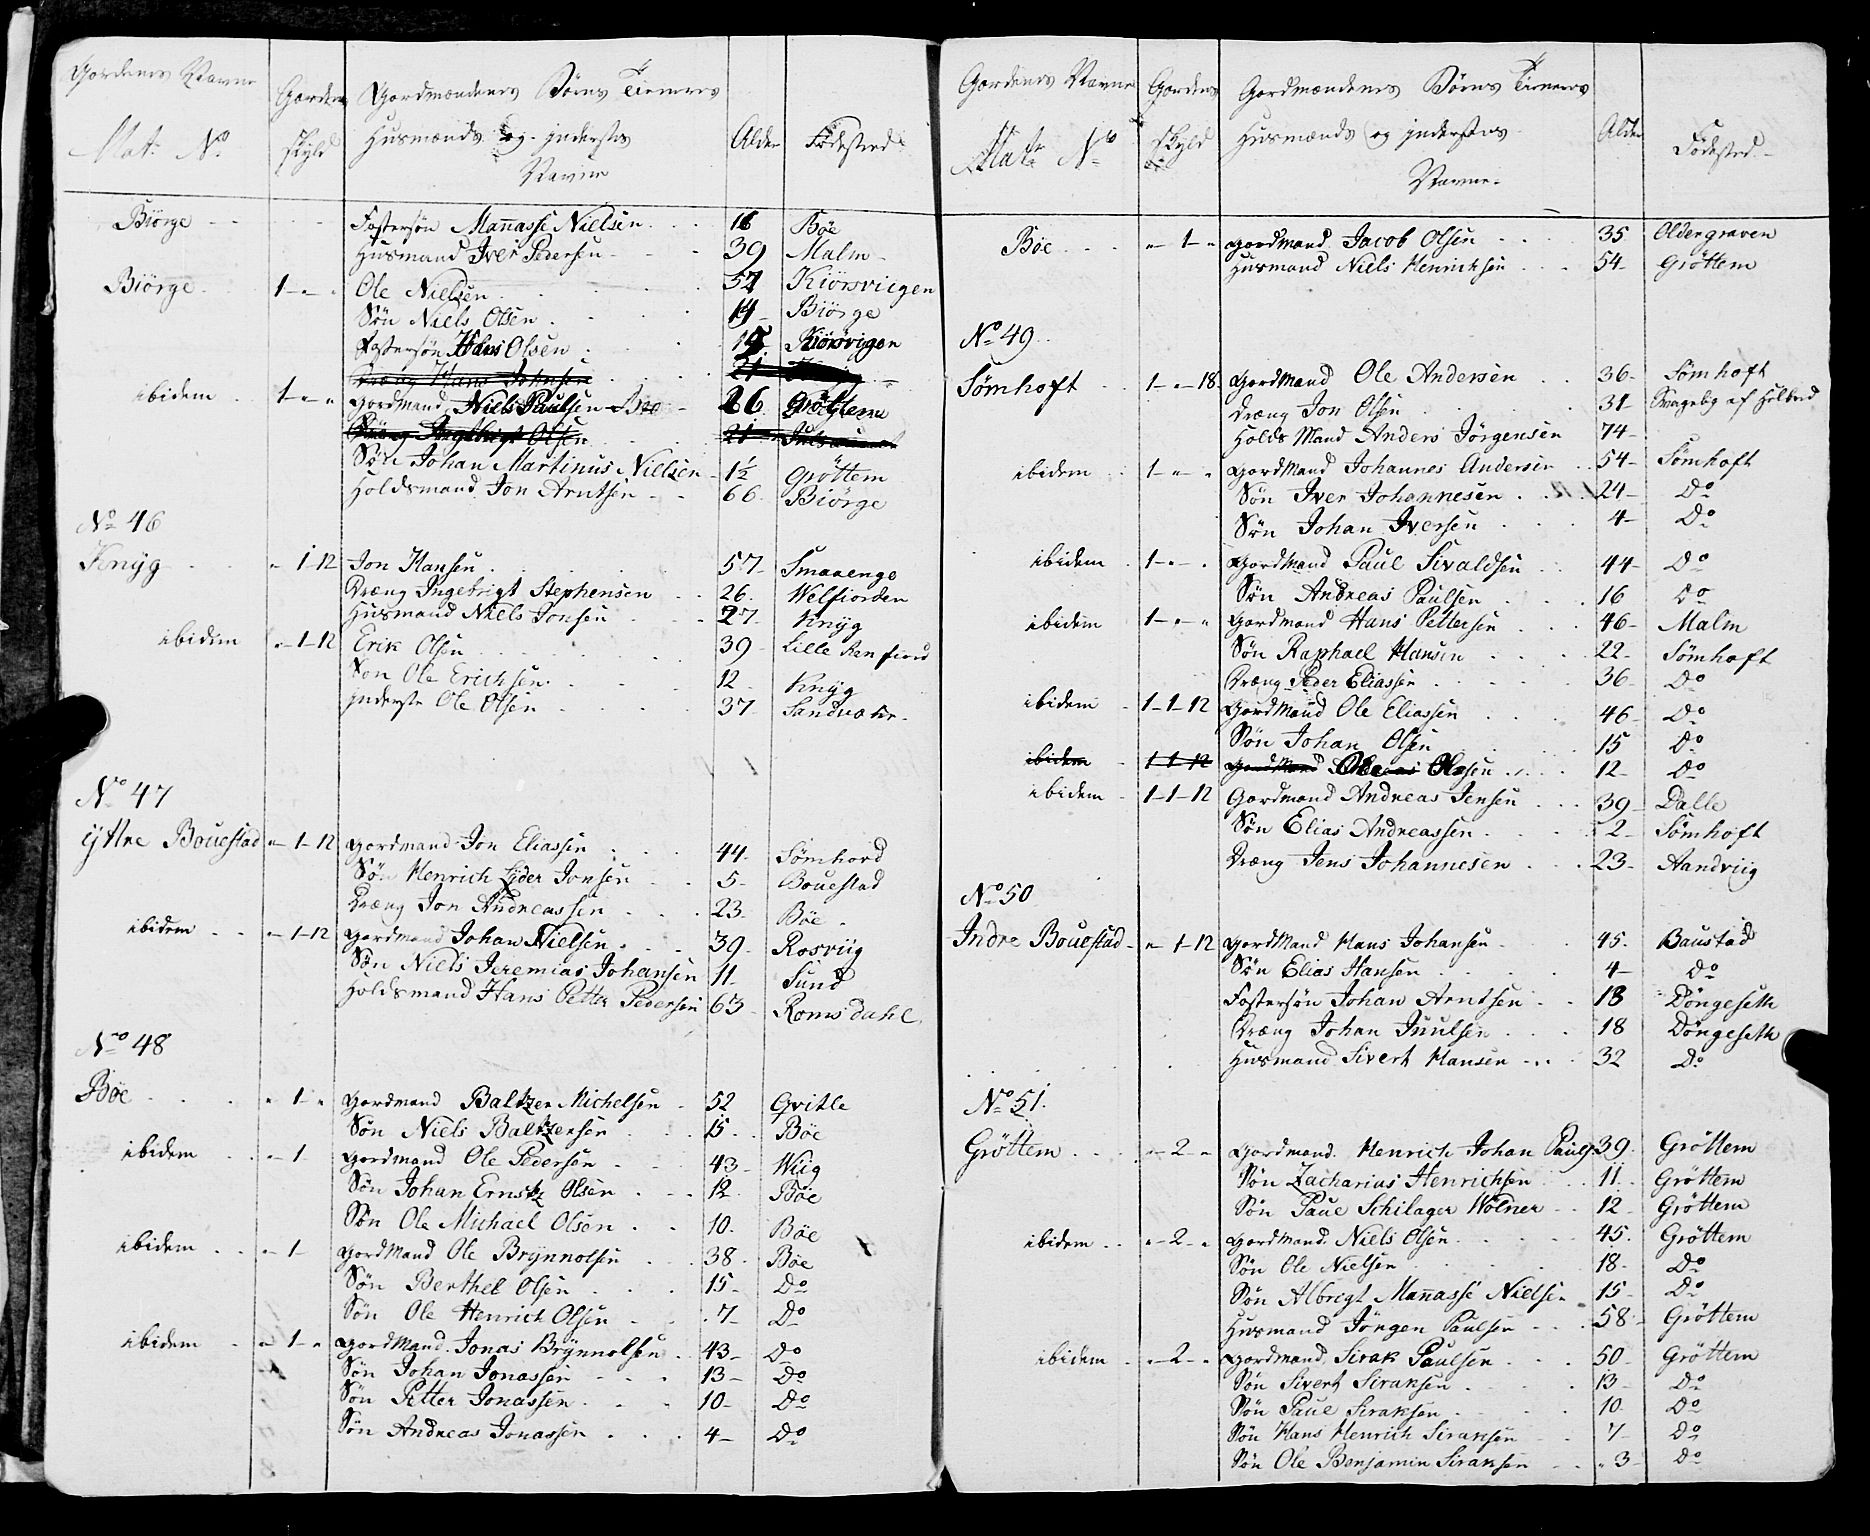 Gordenes Navne Gordens Gordmændenes Børns Tieneres
Mat: No. skyld Husmænds og inderstes Navne Alder Fødested
Biörge Fostersön Manasse Nielsen 18 Böe
Husmand Iver Pedersen 39 Malm
Biörge 1 Ole Nielsen 52 Kiörsviigen
Sön Niels Olsen 14 Biörge
Fostersön Hans Olsen Kiörsvigen
Dræng Hans Johnsen 21
ibidem 1 gordmand Niels Paulsen 26 Gröttem
Dræng Ingebrigt Olsen 21
Sön Johan Martinus Nielsen 1½ Gröttem
Holdsmand Jon Arntsen 66 Biörge
No 46
Knÿg 1-12 Jon Hansen 57 Smaaenge
Dræng Ingebrigt Stephensen 26 Welfiorden
Husmand Niels Jonsen 27 Knÿg
ibidem 1-12 Erik Olsen 39 Lille Ranfiord
Sön Ole Erichsen 12 Knÿg
inderste Ole Olsen 37 Sandvahr
No 47
ÿttre Bouestad 1-12 gordmand Jon Eliassen 44 Sömhovd
Sön Henrich Lÿder Jonsen 5 Bouestad
Dræng Jon Andreassen 23 Böe
ibidem 1-12 gordmand Johan Nielsen 39 Rosviig
Sön Niels Jeremias Johansen 11 Sund
Holdsmand Hans Petter Pedersen 63 Romsdahl
No 48
Böe 1 gordmand Baltzer Michelsen 52 Qvitle
Sön Niels Baltzersen 15 Böe
ibidem 1 gordmand Ole Pedersen 43 Wiig
Sön Johan Ernst Olsen 12 Böe
Sön Ole Michael Olsen 10 Böe
ibidem 1 gordmand Ole Brÿnnolsen 38 Böe
Sön Berthel Olsen 15 Do
Sön Ole Henrich Olsen 7 Do
ibidem 1 gordmand Jonas Brÿnnolsen 43 Do
Sön Johan Jonassen 13 Do
Sön Petter Jonassen 10 Do
Sön Andreas Jonassen 4 Do
Gordenes Navne Gordens Gordmændenes Börns Tieneres
Mat: No skyld Husmænds og inderstes Navne Alder Födested
Böe 1 gordmand Jacob Olsen 35 Oldergraven
Husmand Niels Henrichsen 54 Gröttem
No 49
Sömhoft 1-18 gordmand Ole Andersen 36 Sömhoft
Dræng Jon Olsen 31
Holds Mand Anders Jörgensen 74
ibidem 1 gordmand Johannes Andersen 54 Sömhoft
Sön Iver Johannesen 24 Do
Sön Johan Iversen 4 Do
ibidem 1 gordmand Paul Sivaldsen 44 Do
Sön Andreas Paulsen 16 Do
ibidem 1 gordmand Hans Pettersen 46 Malm
Sön Raphael Hansen 22 Sömhoft
Dræng Peder Eliassen 36 Do
ibidem 1-1-12 gordmand Ole Eliassen 46 Do
Sön Johan Olsen 15 Do
ibidem 1-1-12 gordmand Olsen 12 Do
ibidem 1-1-12 Gordmand Andreas Jensen 39 Dalle
Sön Elias Andreassen 2 Sömhoft
Dræng Jens Johannesen 23 Aandviig
No 50
Indre Bouestad 1-12 gordmand Hans Johansen 45 Baustad
Sön Elias Hansen 4 Do
Fostersön Johan Arntsen 18 Döngeseth
Dræng Johan Juulsen 18 Döngeseth
Husmand Sivert Hansen 32 Do
No 51
Gröttem 2 gordmand Henrich Johan Pauls 39 Gröttem
Sön Zacharias Henrichsen 11 Gröttem
Sön Paul Schilager Wölner 12 Gröttem
ibidem 2 gordmand Niels Olsen 45 Gröttem
Sön Ole Nielsen 18 Do
Sön Albregt Manasse Nielsen 15 Do
Husmand Jörgen Paulsen 58 Gröttem
ibidem 2 gordmand Sirak Paulsen 50 Gröttem
Sön Sivert Siraksen 13 Do
Sön Paul Siraksen 10 Do
Sön Hans Henrich Siraksen 7 Do
Sön Ole Benjamin Siraksen 3 Do